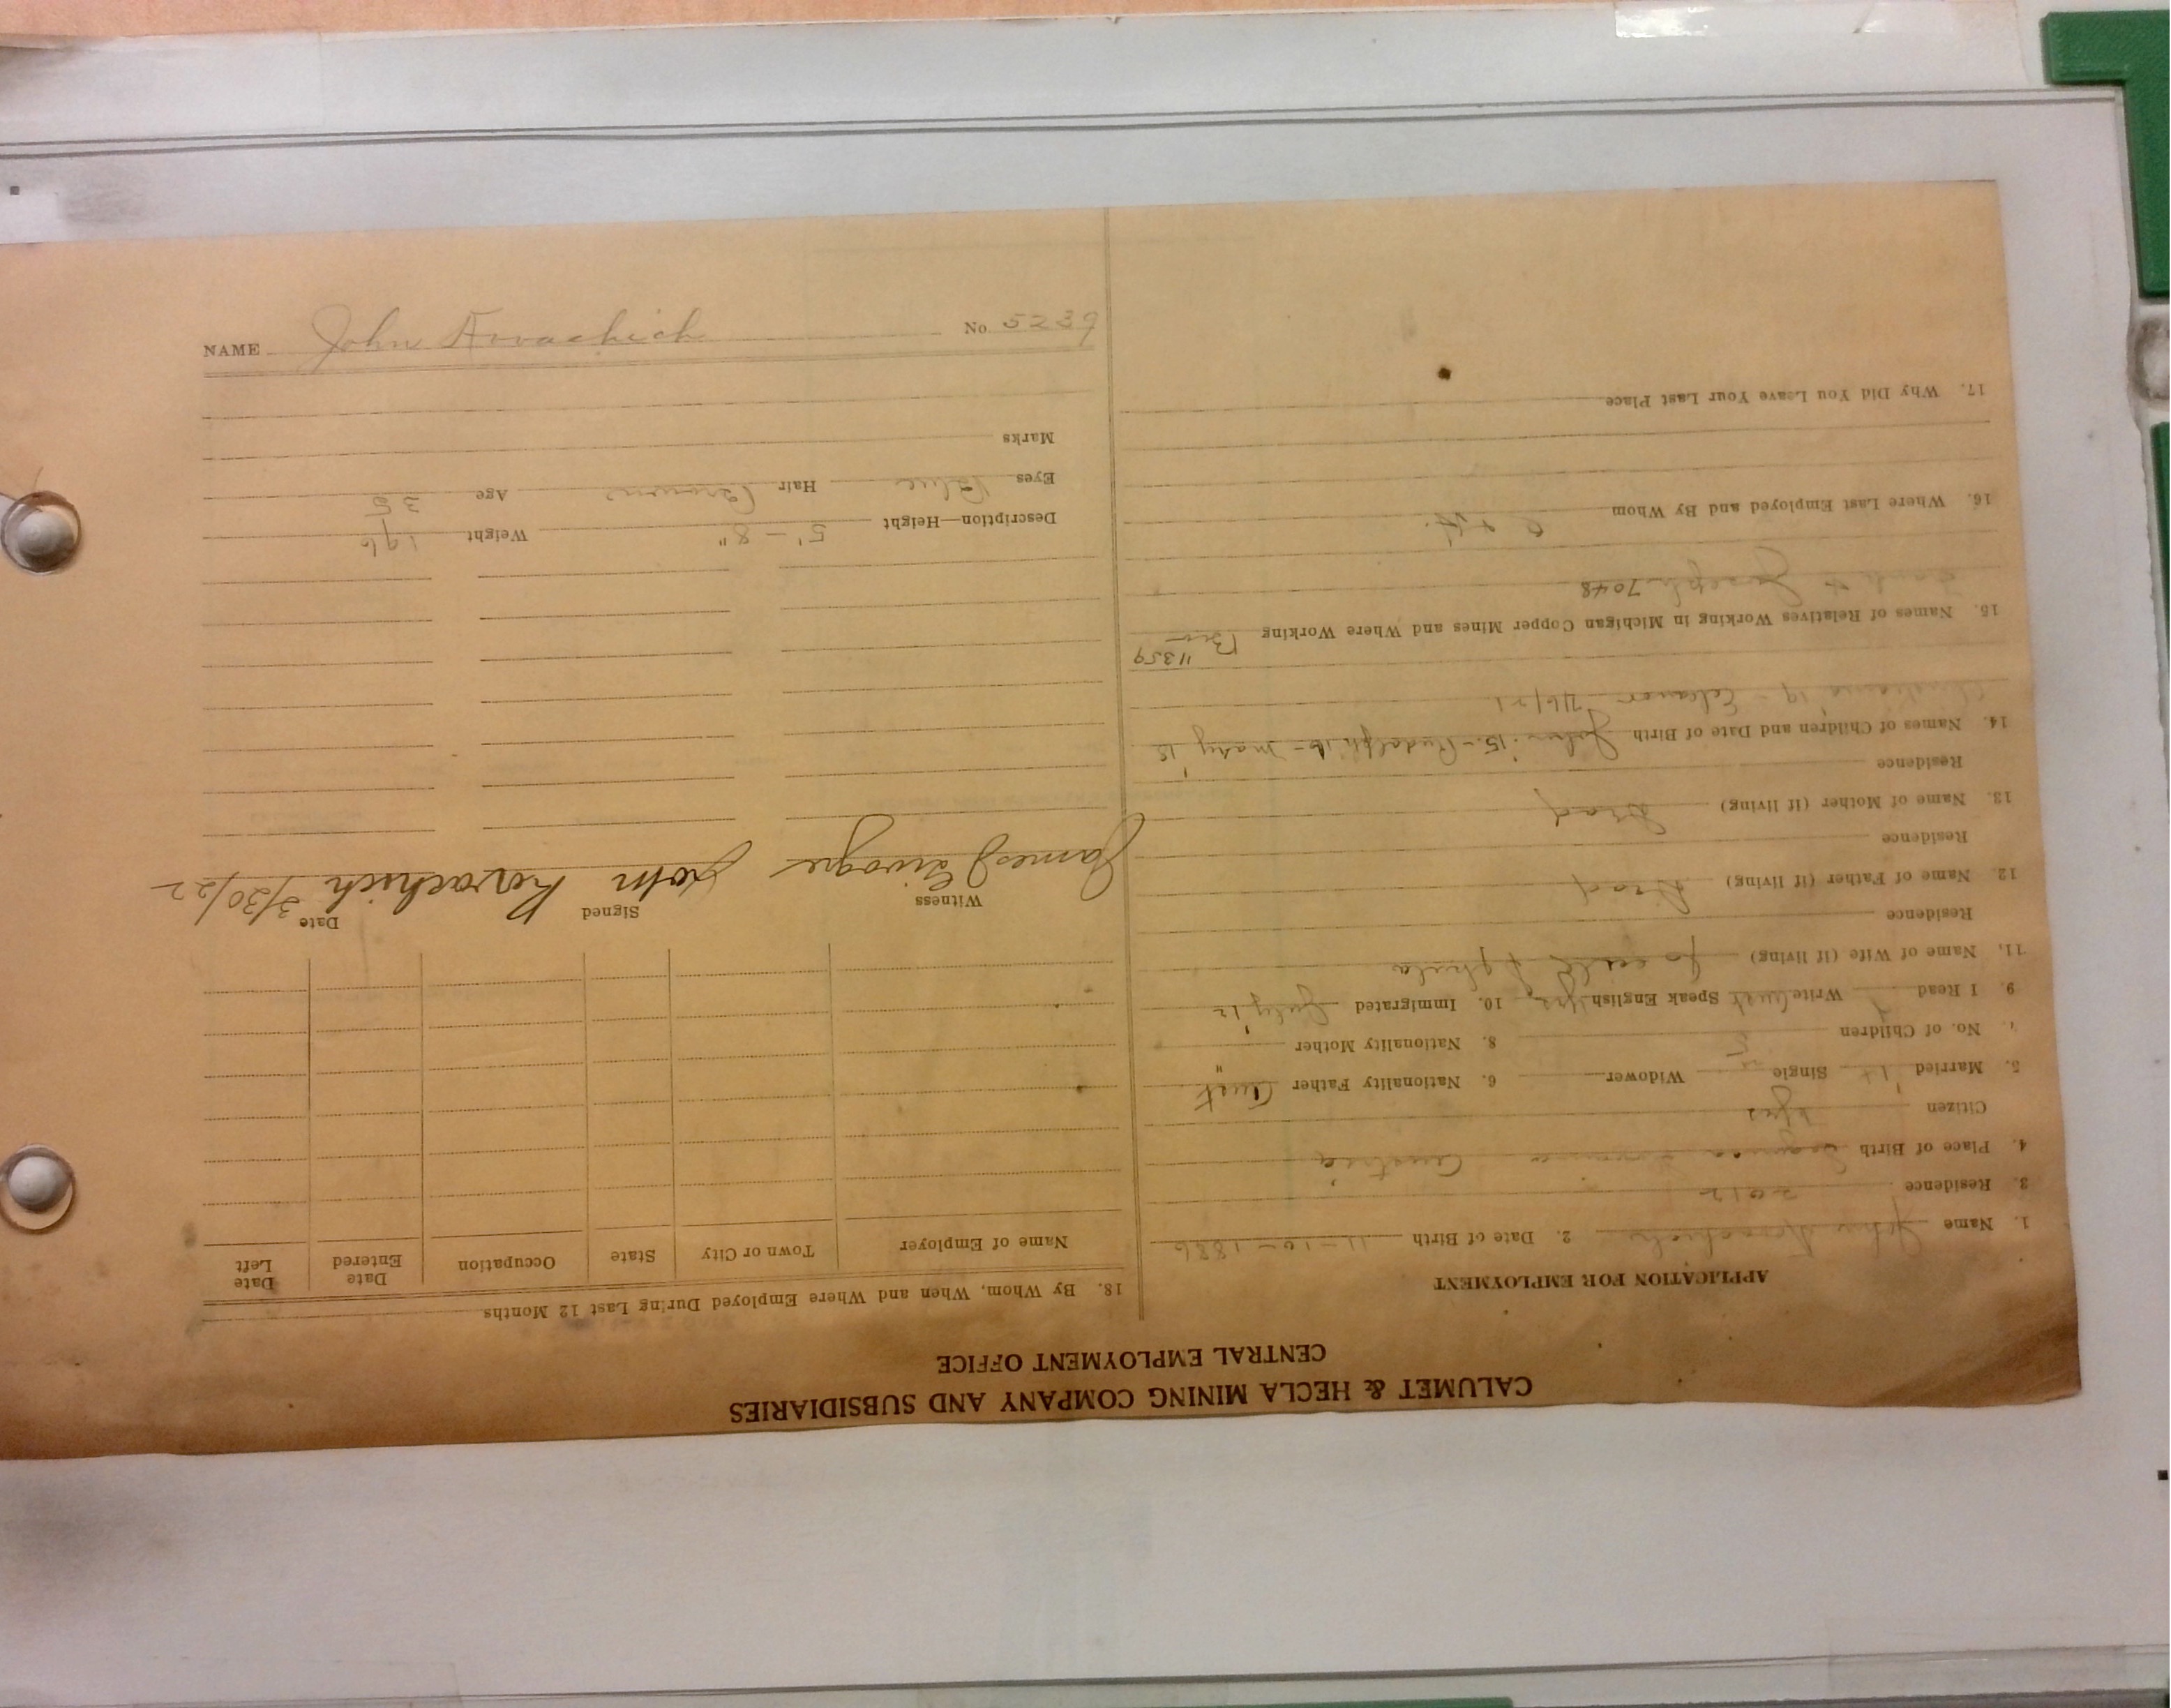 CALUMET & HECLA MINING COMPANY AND SUBSIDIARIES
CENTRAL EMPLOYMENT OFFICE
APPLICATION FOR EMPLOYMENT
1. Name John 2. Date of Birth 11-10-1886
3. Residence 2012
4. Place of Birth Austria
Citizen Yes
5. Married Single Widower 6. Nationality Father Aust
7. No. of Children 5 8. Nationality Mother "
9. I Read Write Aust Speak English Yes 10. Immigrated July '12
11. Name of Wife (if living)
Residence
12. Name of Father (if living) Dead
Residence
13. Name of Mother (if living) Dead
Residence
14. Names of Children and Date of Birth John '15 - Rudolph 16 - Mary '18
19 - Eleanor 7/6/21
11359
15. Names of Relatives Working in Michigan Copper Mines and Where Working Bro
Joseph 7048
16. Where Last Employed and By Whom C & H.
17. Why Did You Leave Your Last Place
18. By Whom, When and Where Employed During Last 12 Months
Name of Employer Town or City State Occupation Date Entered Date Left
Witness Signed Date
James John Kovachich 3/30/22
Description—Height 5'-8" Weight 196
Eyes Blue Hair Brown Age 35
Marks
NAME John Kovachich No. 5239